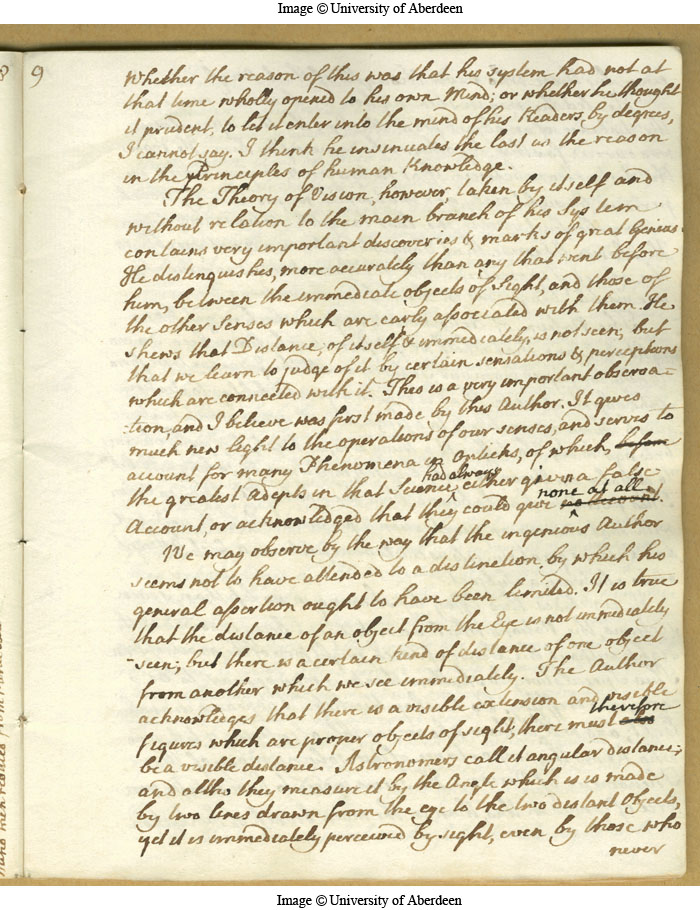 Image © University of Aberdeen
8 9
whether the reason of this was that his system had not at
that time wholly opened to his own Mind; or whether he thought
it prudent, to let it enter into the mind of his Readers, by degrees,
I cannot say. I think he insinuates the last as the reason
in the Principles of human Knowledge.
The Theory of Vision, however taken by itself and
without relation to the main branch of his System
contains very important discoveries & marks of great Genius.
He distinguishes, more accurately than any that went before
him, between the immediate objects of Sight, and those of
the other Senses which are early associated with them. He
shews that Distance, of itself & immediately, is not seen; but
that we learn to judge of it by certain sensations & perceptions
which are connected with it. This is a very important observa=
-tion, and I believe was first made by this Author. It gives
much new light to the operations of our senses, and serves to
account for many Phenomena in Opticks, of which, before
had always
the greatest Adepts in that Science, either given a false
none at all
Account, or acknowledged that they could give no account.
We may observe by the way that the ingenious Author
seems not to have attended to a distinction, by which his
general assertion ought to have been limited. It is true
that the distance of an object from the Eye is not immediately
-seen; but there is a certain kind of distance of one object
from another which we see immediately. The Author
acknowleges that there is a visible extension and visible
therefore
figures which are proper objects of sight, there must also
be a visible distance. Astronomers call it angular distance;
and altho they measure it by the Angle which is made
by two lines drawn from the eye to the two distant Objects,
yet it is immediately perceived by sight, even by those who
never
Image © University of Aberdeen